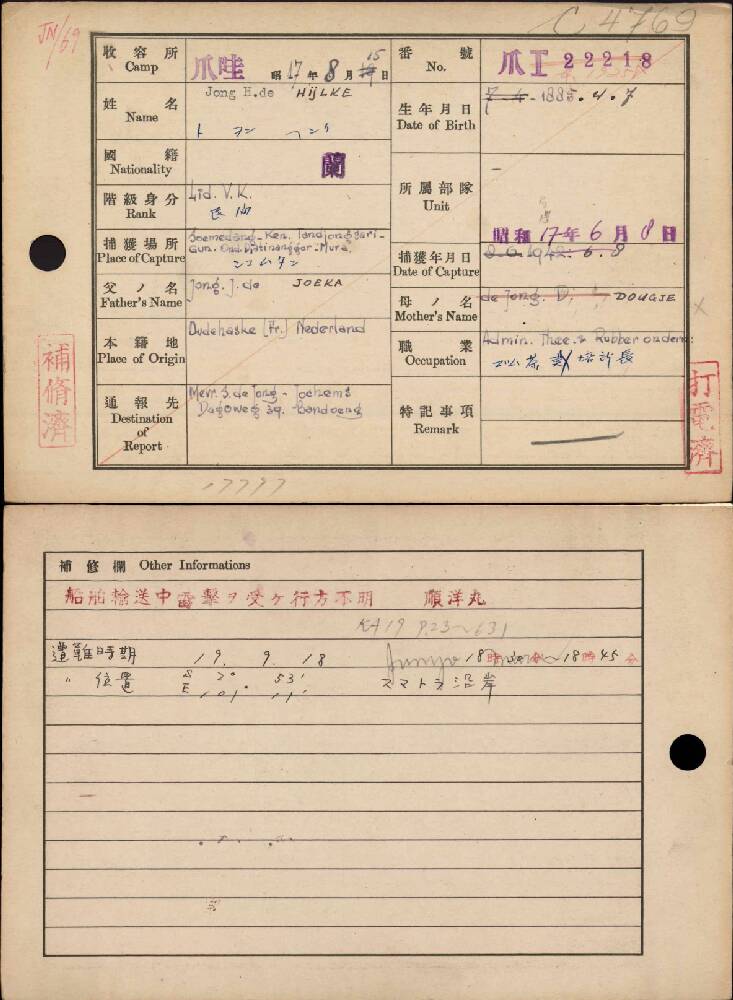 JN/69
C 4769
收容所 Camp
爪哇 昭17年8月15日
番號 No.
爪工 22218
姓名 Name
Jong H.de HijLKE
ト ヨン ヘンリ
生年月日 Date of Birth
1885.4.7
國籍 Nationality
蘭
階級身分 Rank
Lid. V.K.
所屬部隊 Unit
—
捕獲場所 Place of Capture
Soemedang-Ken. Tandjongsari-
Gun. Ond. Djatinanggor-Mura.
捕獲年月日 Date of Capture
昭和17年6月8日
父ノ名 Father's Name
Jong. J. de JOEKA
母ノ名 Mother's Name
de Jong. D. DOUGJE
本籍地 Place of Origin
Oudehaske (Fr.) Nederland
職業 Occupation
Admin. Thee & Rubber ondern:
通報先 Destination of Report
Mevr. S. de Jong - Jochems
Dagoweg 39. Bandoeng
特記事項 Remark
補脩濟
打電濟
17797
補修欄 Other Informations
船舶輸送中雷擊ヲ受ケ行方不明 順洋丸
KA19 P.23~631
遭難時期 19. 9. 18 Junyo 18時 ~18時45分
〃 位置 S 2° 53' スマトラ沿岸
E 101° 11'